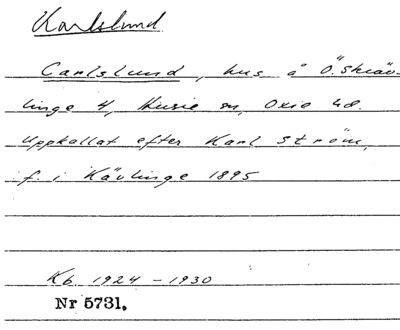 Karlslund
Carlslund, hus å Ö. Skräv-
linge 4, Husie sn, Oxie hd.
Uppkallat efter Karl Ström,
f. i Kävlinge 1895
Kb. 1924 - 1930
Nr 5731.